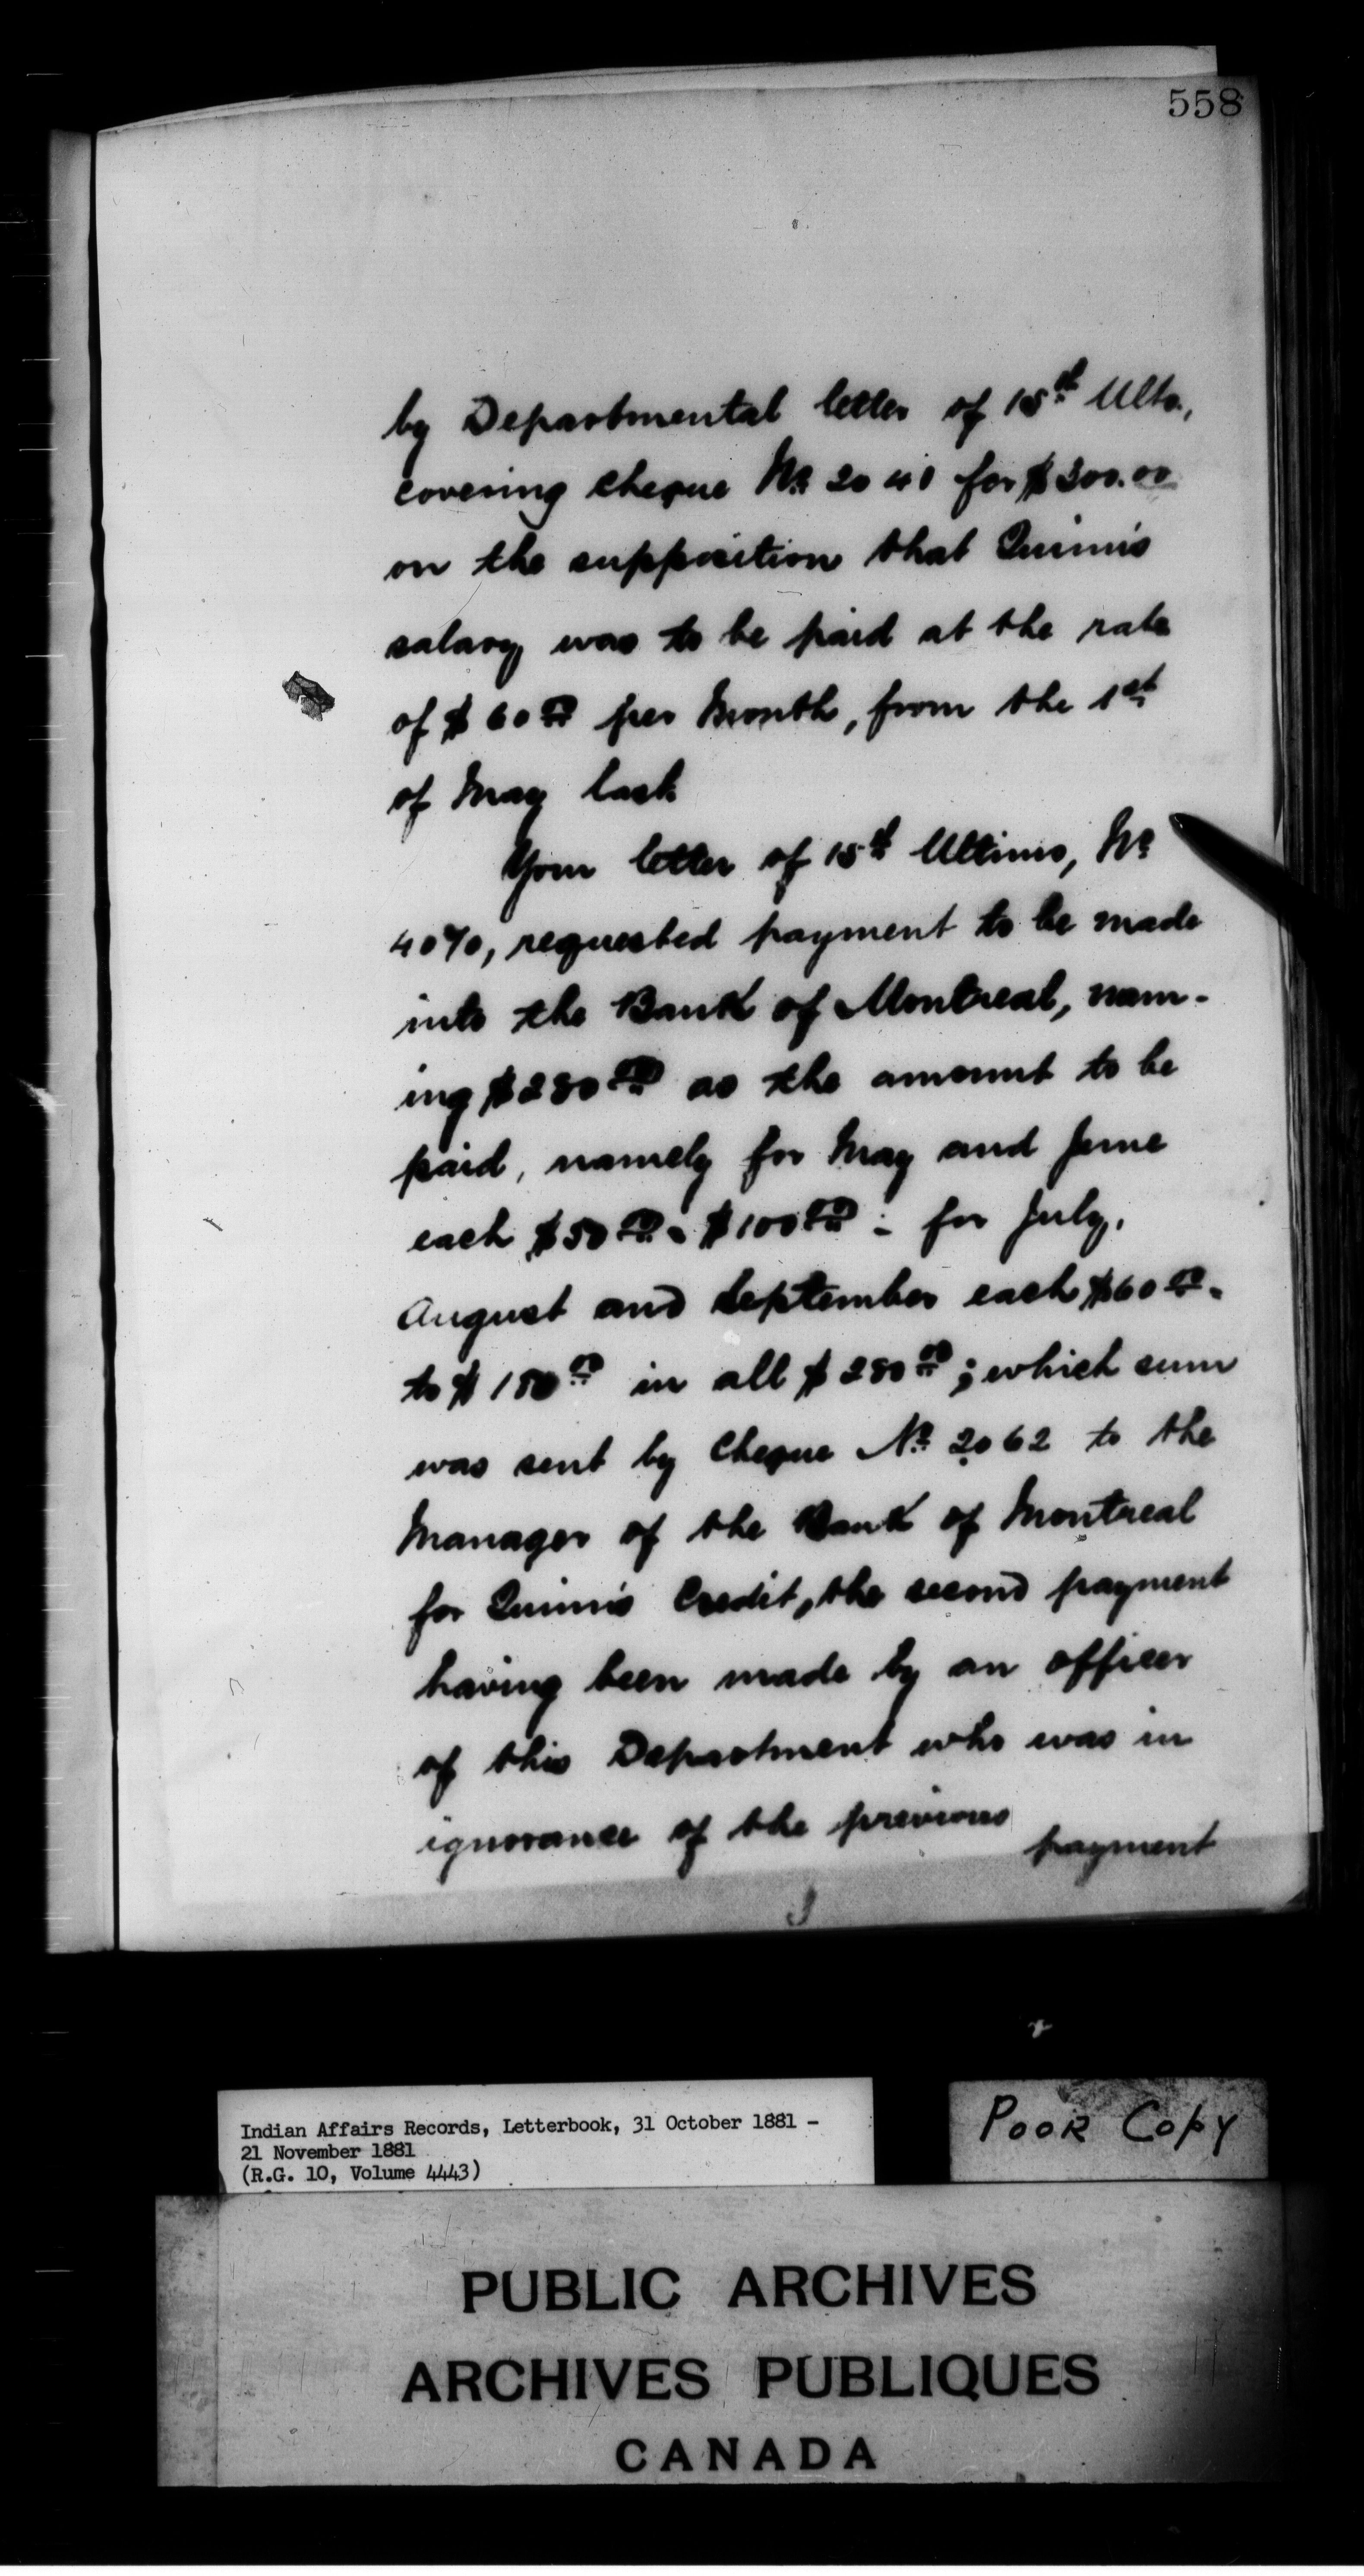 558
by Departmental letter of 15th Ulto.,
covering cheque No. 2040 for $300.00
on the supposition that Quinn's
salary was to be paid at the rate
of $60.00 per Month, from the 1st
of May last
Your letter of 15th Ultimo, No
4070, requested payment to be made
into the Bank of Montreal, nam-
ing $280.00 as the amount to be
paid, namely for May and June
each $50.00 = $100.00 : for July,
August and September each $60.00 =
to $180.00 in all $280.00 ; which sum
was sent by Cheque No. 2062 to the
Manager of the Bank of Montreal
for Quinn's Credit, the second payment
having been made by an officer
of this Department who was in
ignorance of the previous
payment
Indian Affairs Records, Letterbook, 31 October 1881 -
21 November 1881
(R.G. 10, Volume 4443)
POOR COPY
PUBLIC ARCHIVES
ARCHIVES PUBLIQUES
CANADA